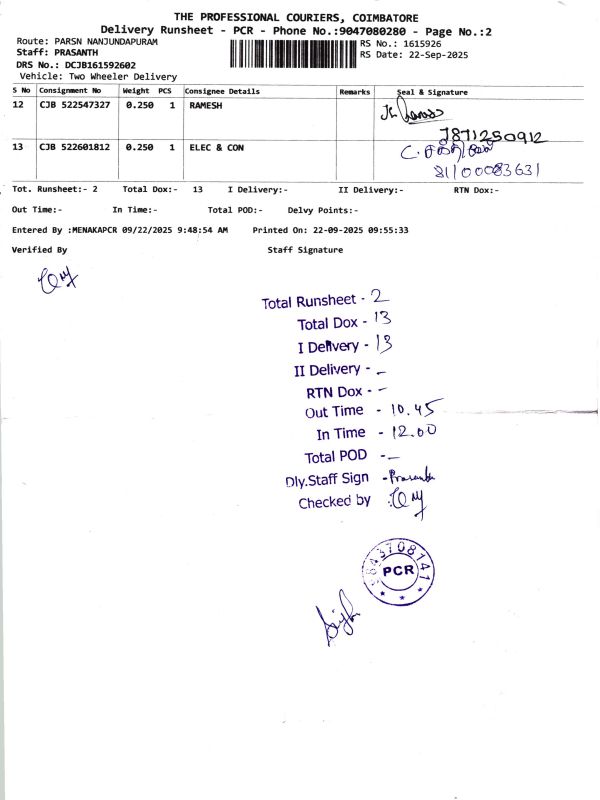 THE PROFESSIONAL COURIERS, COIMBATORE
Delivery Runsheet - PCR - Phone No.:9047080280 - Page No.:2
Route: PARSN NANJUNDAPURAM
RS No.: 1615926
Staff: PRASANTH
RS Date: 22-Sep-2025
DRS No.: DCJB161592602
Vehicle: Two Wheeler Delivery
S No Consignment No Weight PCS Consignee Details Remarks Seal & Signature
12 CJB 522547327 0.250 1 RAMESH
7871250912
13 CJB 522601812 0.250 1 ELEC & CON
C. சக்திவேல்
8110083631
Tot. Runsheet:- 2 Total Dox:- 13 I Delivery:- II Delivery:- RTN Dox:-
Out Time:- In Time:- Total POD:- Delvy Points:-
Entered By :MENAKAPCR 09/22/2025 9:48:54 AM Printed On: 22-09-2025 09:55:33
Verified By Staff Signature
Total Runsheet - 2
Total Dox - 13
I Delivery - 13
II Delivery - -
RTN Dox - -
Out Time - 10.45
In Time - 12.00
Total POD - -
Dly.Staff Sign - Prasanth
Checked by :
9843708141
PCR
* * *